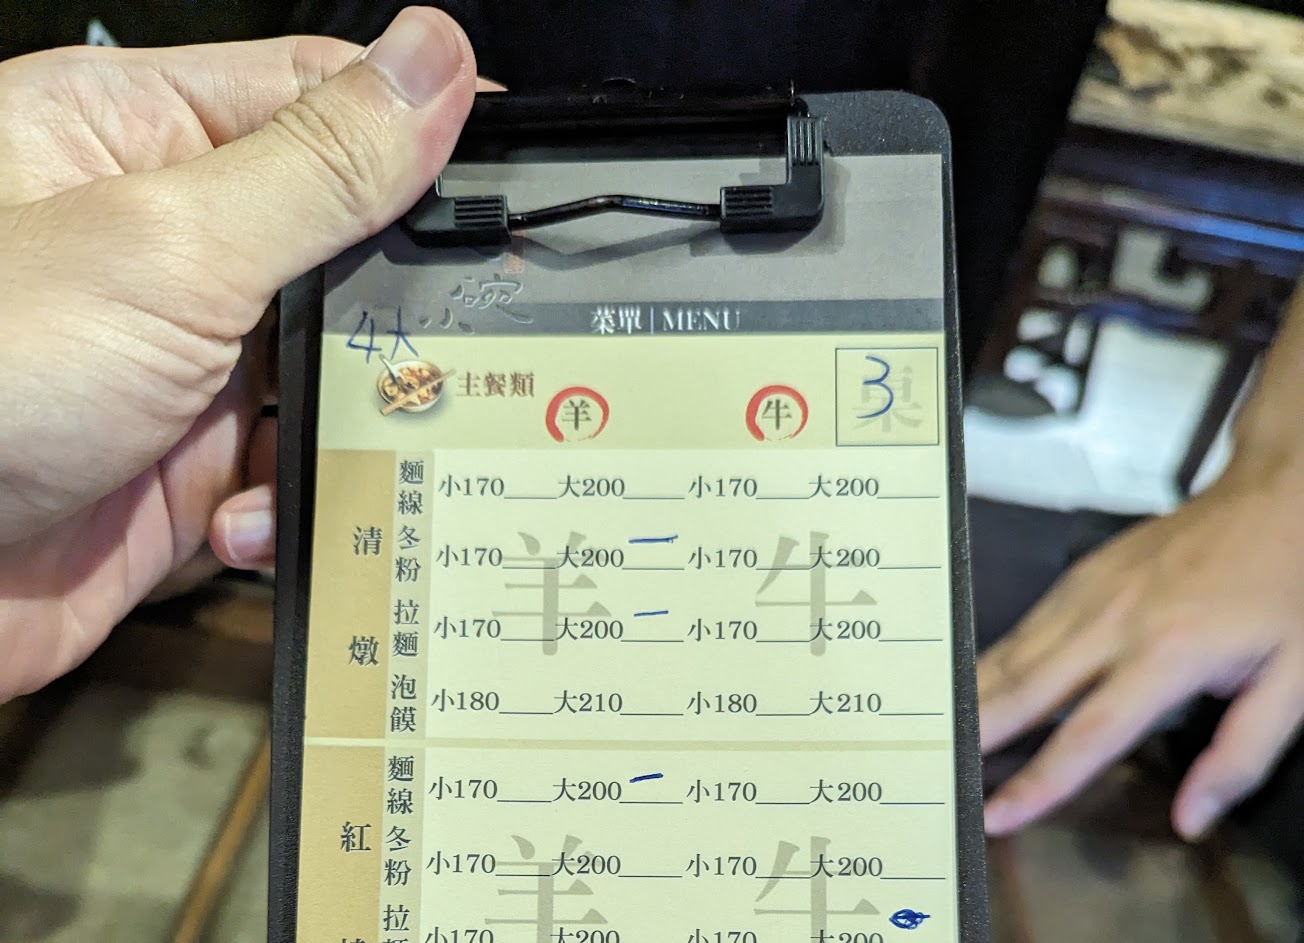 小碗
菜單 | MENU
4大
主餐類 羊 牛 桌 3
清燉
麵線 小170___ 大200___ 小170___ 大200___
冬粉 小170___ 大200 一 小170___ 大200___
拉麵 小170___ 大200 一 小170___ 大200___
泡饃 小180___ 大210___ 小180___ 大210___
羊 牛
紅
麵線 小170___ 大200 一 小170___ 大200___
冬粉 小170___ 大200___ 小170___ 大200___
拉 小170 大200 小170 大200
羊 牛